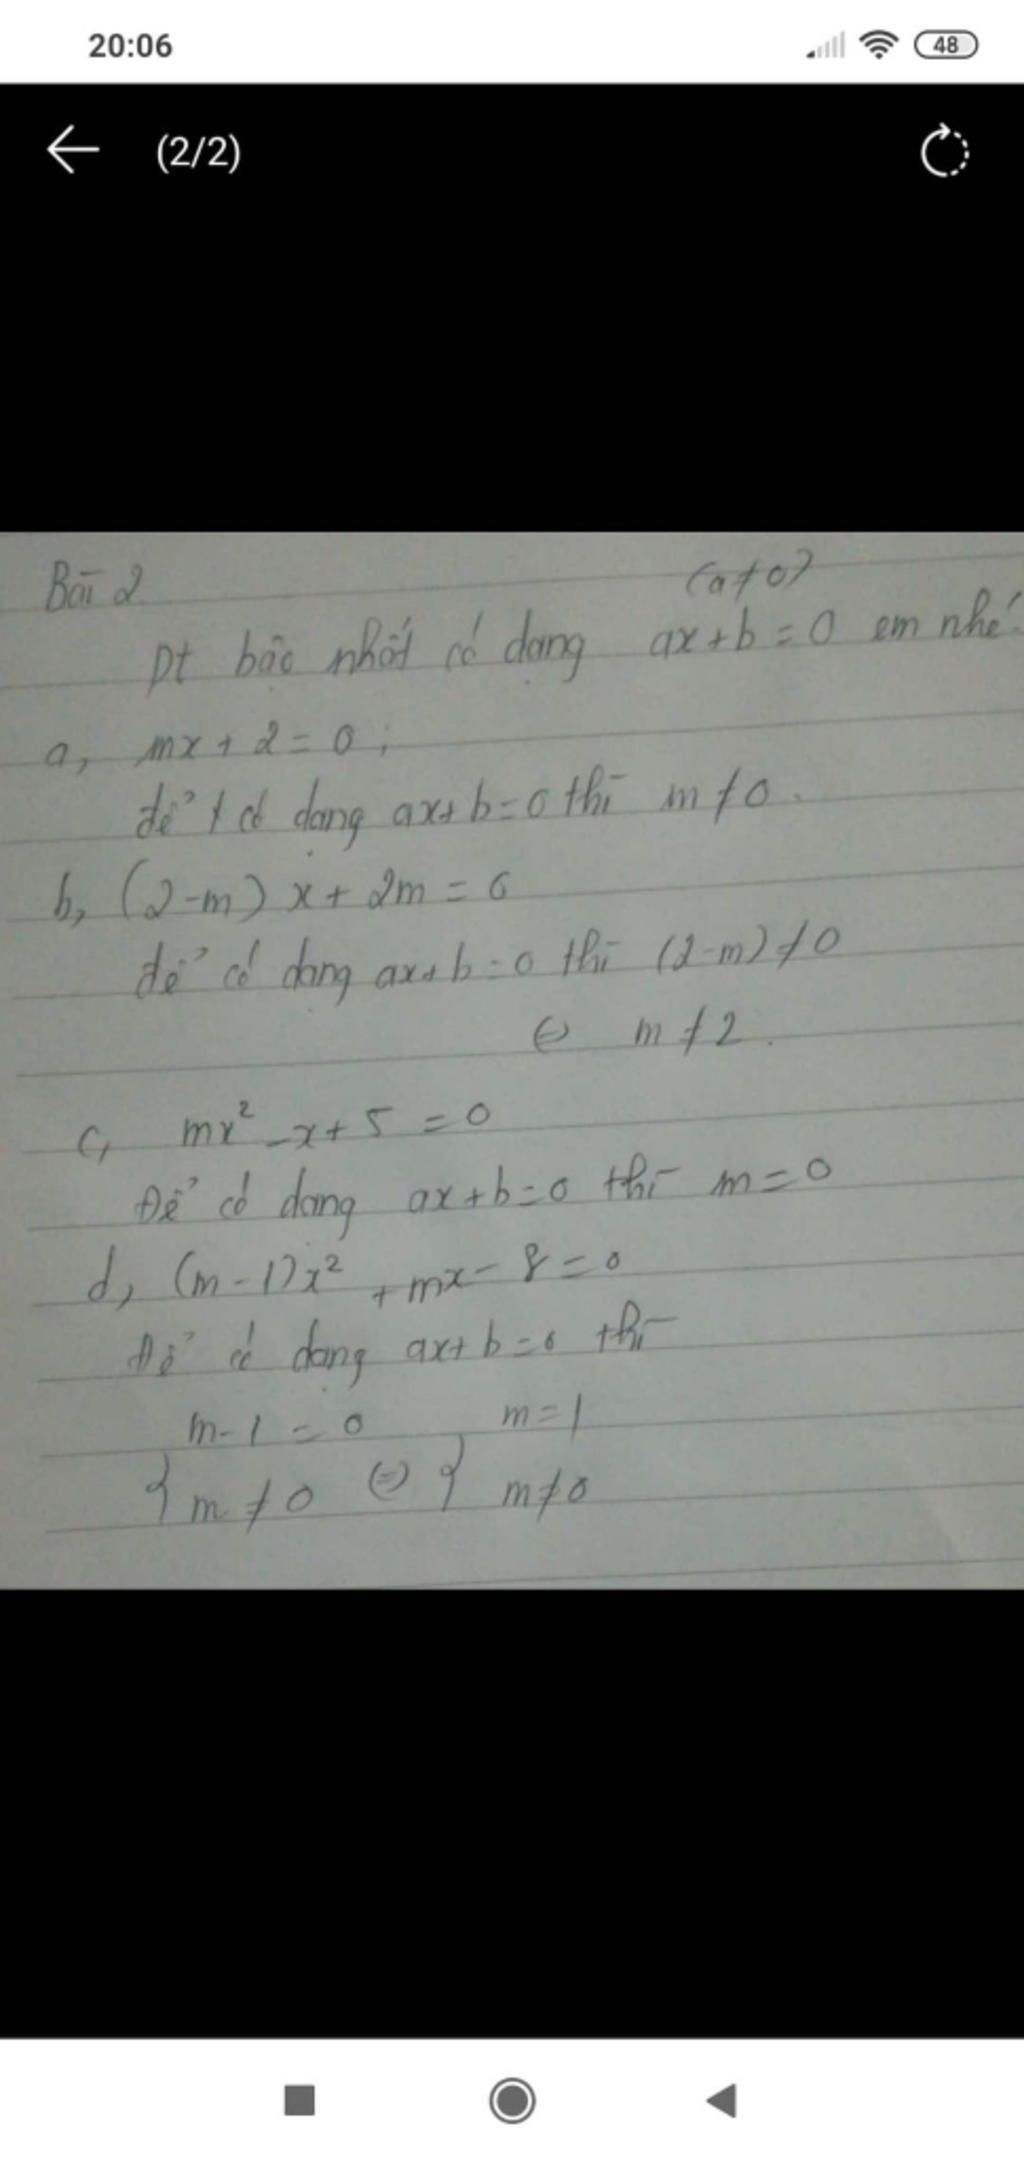 20:06
48
(2/2)
Bài 2
(a≠0)
pt bậc nhất có dạng ax+b=0 em nhé!
a, mx+2=0;
để có dạng ax+b=0 thì m≠0.
b, (2-m)x+2m=0
để có dạng ax+b=0 thì (2-m)≠0
⇔ m≠2.
c, mx²-x+5=0
Để có dạng ax+b=0 thì m=0
d, (m-1)x²+mx-8=0
Để có dạng ax+b=0 thì
m-1=0 m=1
{m≠0 ⇔ { m≠0